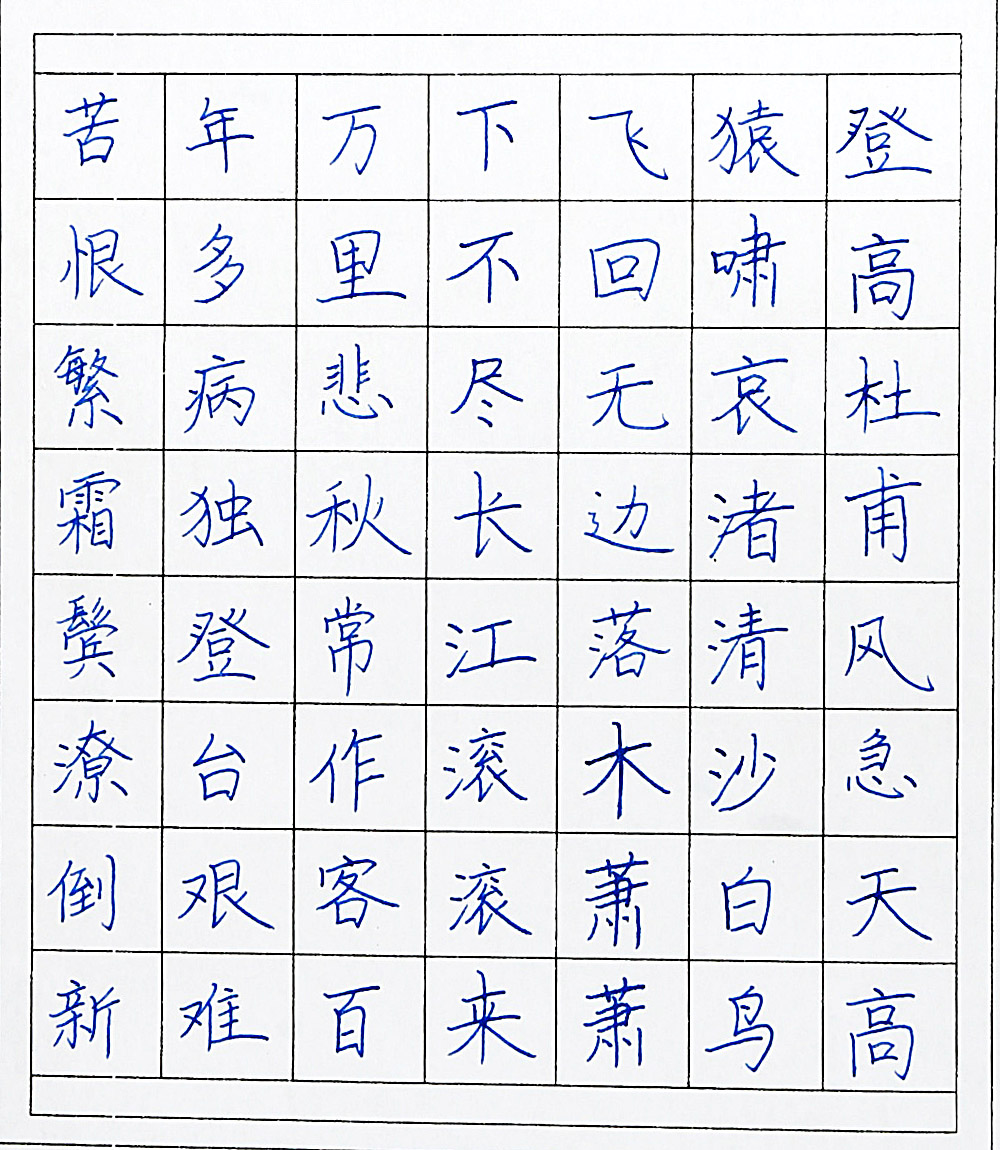 登高杜甫风急天高
猿啸哀渚清沙白鸟
飞回无边落木萧萧
下不尽长江滚滚来
万里悲秋常作客百
年多病独登台艰难
苦恨繁霜鬓潦倒新